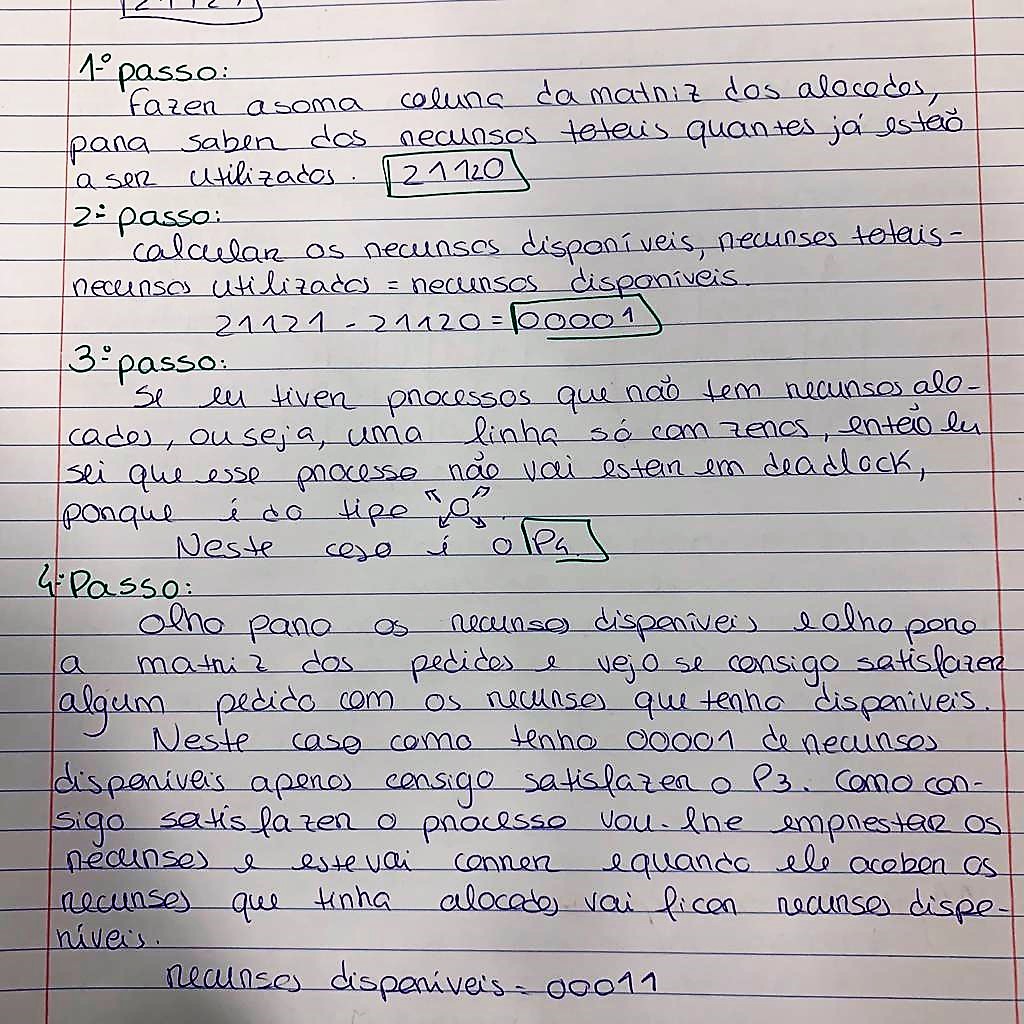 21121
1º passo:
Fazer a soma coluna da matriz dos alocados,
para saber dos recursos totais quantos já estão
a ser utilizados. 21120
2º passo:
calcular os recursos disponíveis, recursos totais -
recursos utilizados = recursos disponíveis.
21121 - 21120 = 00001
3º passo:
Se eu tiver processos que não tem recursos alo-
cados, ou seja, uma linha só com zeros, então eu
sei que esse processo não vai estar em deadlock,
porque é do tipo
Neste caso é o P4
4º Passo:
Olho para os recursos disponíveis e olho para
a matriz dos pedidos e vejo se consigo satisfazer
algum pedido com os recursos que tenho disponíveis.
Neste caso como tenho 00001 de recursos
disponíveis apenas consigo satisfazer o P3. Como con-
sigo satisfazer o processo vou-lhe emprestar os
recursos e este vai correr e quando ele acabar os
recursos que tinha alocados vai ficar recursos dispo-
níveis.
recursos disponíveis = 00011